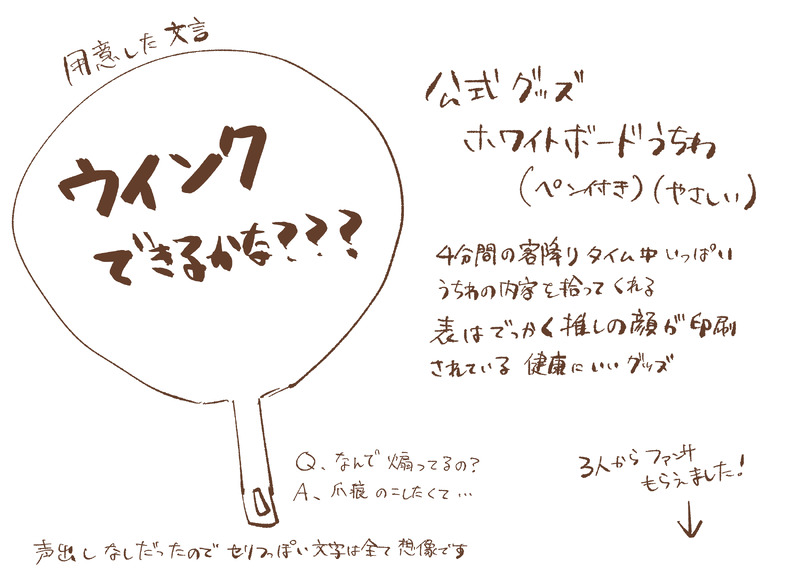 用意した文言
ウインク
できるかな???
公式グッズ
ホワイトボードうちわ
(ペン付き)(やさしい)
4分間の客降りタイム中いっぱい
うちわの内容を拾ってくれる
表はでっかく推しの顔が印刷
されている 健康にいいグッズ
Q、なんで煽ってるの?
A、爪痕のこしたくて…
3人からファンサ
もらえました!
↓
声出しなしだったのでセリフっぽい文字は全て想像です